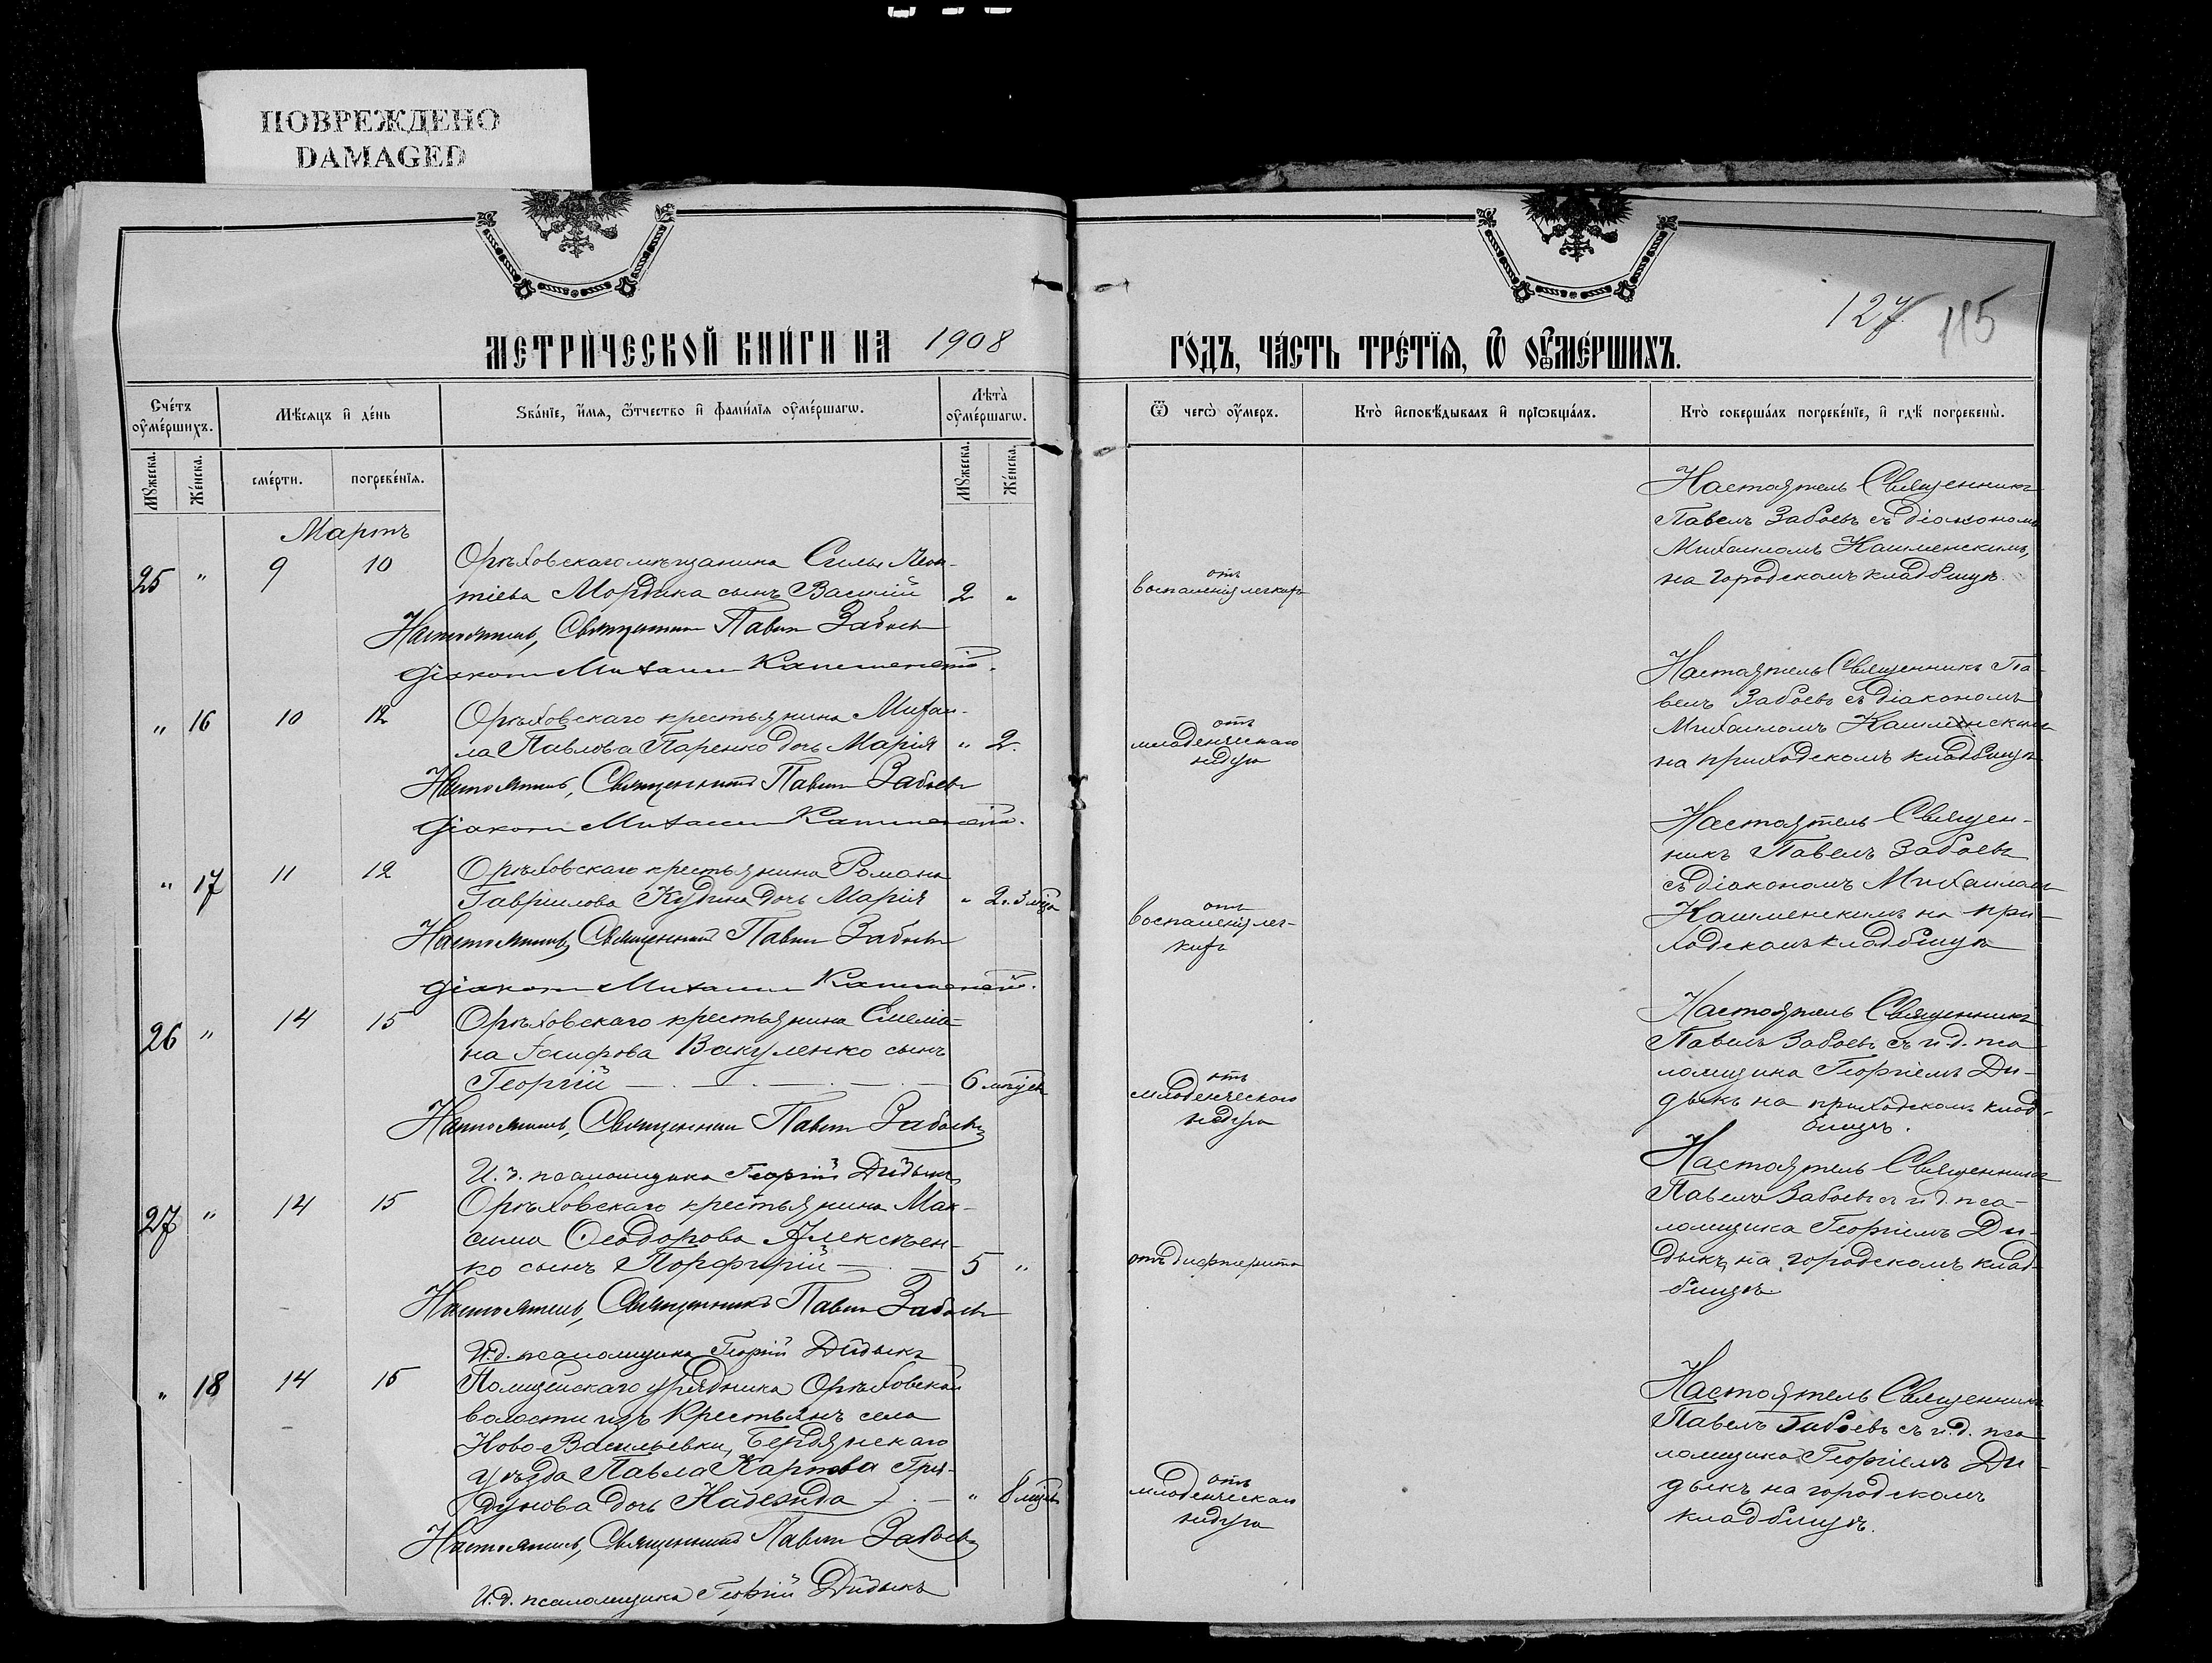 ПОВРЕЖДЕНО
DAMAGED
МЕТРИ́ЧЕСКОЙ КНИ́ГИ НА 1908
ГО́ДЪ, ЧА́СТЬ ТРЕ́ТЇѦ, Ѡ ОУМЕ́РШИХЪ.
127 115
Сче́тъ оуме́ршихъ.
Мѣ́сяцъ и де́нь
Ѕва́нїе, и́мя, ѿчество и фами́лїя оуме́ршагѡ.
Лѣта̀ оуме́ршагѡ.
Ѿ чегѡ̀ оу́меръ.
Кто̀ исповѣ́дывалъ и прїѡбща́лъ.
Кто̀ соверша́лъ погребе́нїе, и гдѣ̀ погребены̀.
Мꙋ́жеска.
Же́нска.
сме́рти.
погребе́нїя.
Мꙋ́жеска.
Же́нска.
Мартъ
25 " 9 10
Орѣховскаго мѣщанина Силы Леон-
тіева Мордика сынъ Василій 2 "
отъ
воспаленія легкихъ
Настоятель Священникъ
Павелъ Забоевъ съ діакономъ
Михаиломъ Кашменскимъ,
на городскомъ кладбищѣ.
Настоятель, Священникъ Павелъ Забоевъ
Діаконъ Михаилъ Кашменскій.
" 16 10 12
Орѣховскаго крестьянина Михаи-
ла Павлова Паренко дочь Марія " 2.
отъ
младенческаго
недуга
Настоятель Священникъ Па-
велъ Забоевъ съ діакономъ
Михаиломъ Кашменскимъ
на приходскомъ кладбищѣ
Настоятель, Священникъ Павелъ Забоевъ
Діаконъ Михаилъ Кашменскій.
" 17 11 12
Орѣховскаго крестьянина Романа
Гавріилова Кудина дочь Марія " 2 г. 3 мѣся
отъ
воспаленія лег-
кихъ
Настоятель Священ-
никъ Павелъ Забоевъ
съ діакономъ Михаиломъ
Кашменскимъ на при-
ходскомъ кладбищѣ
Настоятель, Священникъ Павелъ Забоевъ
Діаконъ Михаилъ Кашменскій.
26 " 14 15
Орѣховскаго крестьянина Емеліа-
на Іосифова Вакуленко сынъ
Георгій 6 мѣсяц
отъ
младенческаго
недуга
Настоятель Священникъ
Павелъ Забоевъ съ и. д. пса-
ломщика Георгіемъ Ди-
дыкъ на приходскомъ клад-
бищѣ.
Настоятель, Священникъ Павелъ Забоевъ
И. д. псаломщика Георгій Дидыкъ
27 " 14 15
Орѣховскаго крестьянина Мак-
сима Ѳеодорова Алексѣен-
ко сынъ Порфирій 5 "
отъ дифтерита
Настоятель Священникъ
Павелъ Забоевъ съ и. д. пса-
ломщика Георгіемъ Ди-
дыкъ, на городскомъ клад-
бищѣ
Настоятель, Священникъ Павелъ Забоевъ
И. д. псаломщика Георгій Дидыкъ
" 18 14 15
Полицейскаго урядника Орѣховской
волости изъ крестьянъ села
Ново-Васильевки, Бердянскаго
уѣзда Павла Карпова Гри-
дунова дочь Надежда " 8 мѣсяц
отъ
младенческаго
недуга
Настоятель Священникъ
Павелъ Забоевъ съ и. д. пса-
ломщика Георгіемъ Ди-
дыкъ на городскомъ
кладбищѣ.
Настоятель, Священникъ Павелъ Забоевъ
И. д. псаломщика Георгій Дидыкъ